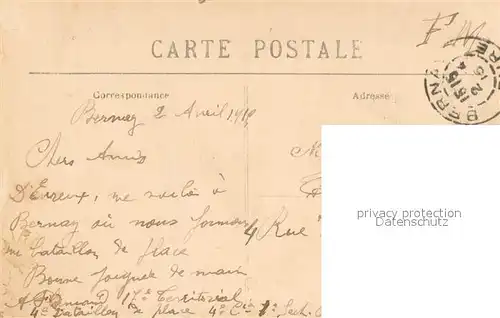 F M
CARTE POSTALE
Correspondance
Adresse
BERNAY
15 15
2 4
Bernay 2 Avril 1915
Chers Amis
D'Evreux, me voilà à
Bernay où nous formons
un bataillon de place
Bonne poignée de main
17e Territorial
4e bataillon de place 4e Cie 1e Sect
M
4 Rue
privacy protection
Datenschutz